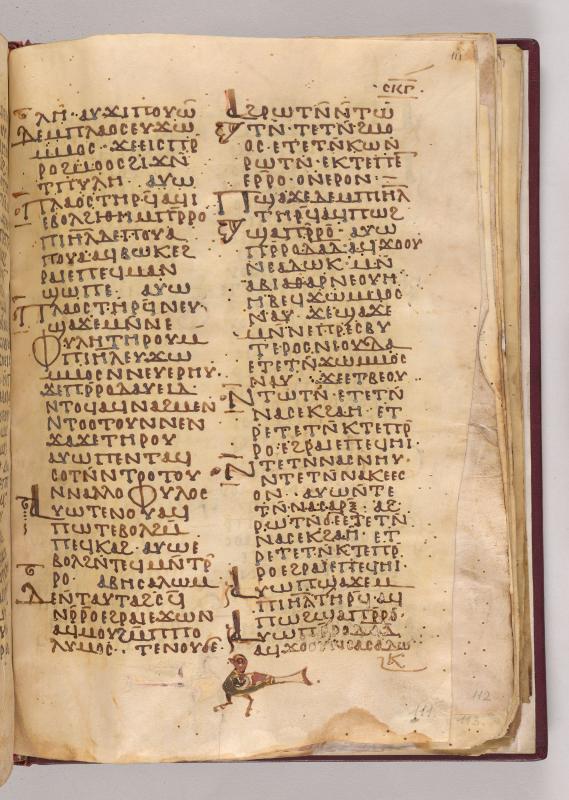 ·ⲥⲕⲅ·
ⲗⲏ· ⲁⲩϫⲓⲡⲟⲩⲱ̄
ⲇⲉⲙⲡⲗⲁⲟⲥⲉⲩϫⲱ
ⲙⲙⲟⲥ· ϫⲉⲉⲓⲥⲡⲣ̄
ⲣⲟϩⲙⲟⲟⲥϩⲓϫⲛ̄
ⲧⲡⲩⲗⲏ· ⲁⲩⲱ
ⲡⲗⲁⲟⲥⲧⲏⲣϥ̄ⲁϥⲓ
ⲉⲃⲟⲗϩⲓⲑⲏⲙⲡⲣ̄ⲣⲟ
ⲡⲓⲏⲗ̄ⲇⲉⲡⲟⲩⲁ
ⲡⲟⲩⲁϥⲃⲱⲕⲉϩ
ⲣⲁⲓⲉⲡⲉϥⲙⲁⲛ
ϣⲱⲡⲉ· ⲁⲩⲱ
ⲡⲗⲁⲟⲥⲧⲏⲣϥ̄ⲛⲉⲩ
ϣⲁϫⲉⲙⲛ̄ⲛⲉ
ⲫⲩⲗⲏⲧⲏⲣⲟⲩⲙ
ⲡⲓⲏⲗⲉⲩϫⲱ
ⲙⲙⲟⲥⲛⲛⲉⲩⲉⲣⲏⲩ
ϫⲉⲡⲣ̄ⲣⲟⲇⲁⲩⲉⲓⲇ
ⲛⲧⲟϥⲁϥⲛⲁϩⲙⲉⲛ
ⲛⲧⲟⲟⲧⲟⲩⲛⲛⲉⲛ
ϫⲁϫⲉⲧⲏⲣⲟⲩ
ⲁⲩⲱⲡⲉⲛⲧⲁϥ
ⲥⲟⲧⲛ̄ⲛⲧⲟⲟⲧⲟⲩ
ⲛⲛⲁⲗⲗⲟⲫⲩⲗⲟⲥ
ⲁⲩⲱⲧⲉⲛⲟⲩⲁϥ
ⲡⲱⲧⲉⲃⲟⲗϩⲙ
ⲡⲉϥⲕⲁϩ· ⲁⲩⲱⲉ
ⲃⲟⲗϩⲛ̄ⲧⲉϥⲙⲛ̄ⲧⲣ̄
ⲣⲟ· ⲁⲃⲏⲥⲁⲗⲱⲙ
ⲇⲉⲛⲧⲁⲩⲧⲁϩⲥϥ̄
ⲛⲣ̄ⲣⲟⲉϩⲣⲁⲓⲉϫⲱⲛ
ⲁϥⲙⲟⲩϩⲙⲡⲡⲟ
ⲗⲩⲙⲟⲥ· ⲧⲉⲛⲟⲩϭⲉ
ⲁϩⲣⲱⲧⲛ̄ⲛ̄ⲧⲱ
ⲧⲛ̄· ⲧⲉⲧⲛ̄ϩⲙⲟ
ⲟⲥ·ⲉⲧⲉⲧⲛ̄ⲕⲱⲛ̄
ⲣⲱⲧⲛ̄·ⲉⲕⲧⲉⲡⲉ
ⲉⲣ̄ⲣⲟ·ⲟⲛⲉⲣⲟⲛ·
ⲡϣⲁϫⲉⲇⲉⲙⲡⲓⲏⲗ̄
ⲧⲏⲣϥ̄ⲁϥⲡⲱϩ
ϣⲁⲡⲣ̄ⲣⲟ· ⲁⲩⲱ
ⲡⲣ̄ⲣⲟⲇⲁⲇ̄ⲁϥϫⲟⲟⲩ
ⲛⲥⲁⲇⲱⲕ·ⲙⲛ̄
ⲁⲃⲓⲁⲑⲁⲣⲛⲉⲟⲩⲏ
ⲏⲃⲉϥϫⲱⲙⲙⲟⲥ
ⲛⲁⲩ·ϫⲉϣⲁϫⲉ
ⲙⲛ̄ⲛⲉⲡⲣⲉⲥⲃⲩ
ⲧⲉⲣⲟⲥⲛⲓⲟⲩⲇⲁ
ⲉⲧⲉⲧⲛ̄ϫⲱⲙⲙⲟⲥ
ⲛⲁⲩ· ϫⲉⲉⲧⲃⲉⲟⲩ
ⲛ̄ⲧⲱⲧⲛ̄· ⲉⲧⲉⲧⲛ̄
ⲛⲁϩⲉⲕϩⲁⲏ· ⲉⲧ
ⲣⲉⲧⲉⲧⲛ̄ⲕⲧⲉⲡⲣ̄
ⲣⲟ·ⲉϩⲣⲁⲓⲉⲡⲉϥⲏⲓ
ⲛ̄ⲧⲉⲧⲛ̄ⲛⲁⲥⲛⲏⲩ·
ⲛ̄ⲧⲉⲧⲛ̄ⲛⲁⲕⲉⲉⲥ
ⲟⲛ· ⲁⲩⲱⲛ̄ⲧⲉ
ⲧⲛ̄ⲛⲁⲥⲁⲣⲝ̄· ⲁϩ
ⲣⲱⲧⲛ̄ϭⲉⲉⲧⲉⲧⲛ̄
ⲛⲁϩⲉⲕϩⲁⲏ· ⲉⲧ
ⲣⲉⲧⲉⲧⲛ̄ⲕⲧⲉⲡⲣ̄
ⲣⲟⲉϩⲣⲁⲓⲉⲡⲉϥⲏⲓ
ⲁⲩⲱⲡϣⲁϫⲉⲙ
ⲡⲓⲏⲗ̄ⲧⲏⲣϥ·ⲁϥ
ⲡⲱϩϣⲁⲡⲣ̄ⲣⲟ·
ⲁⲩⲱⲡⲣ̄ⲣⲟⲇⲁⲇ̄
ⲁϥϫⲟⲟⲩⲛⲥⲁⲇⲱ
ⲕ
111
112
113